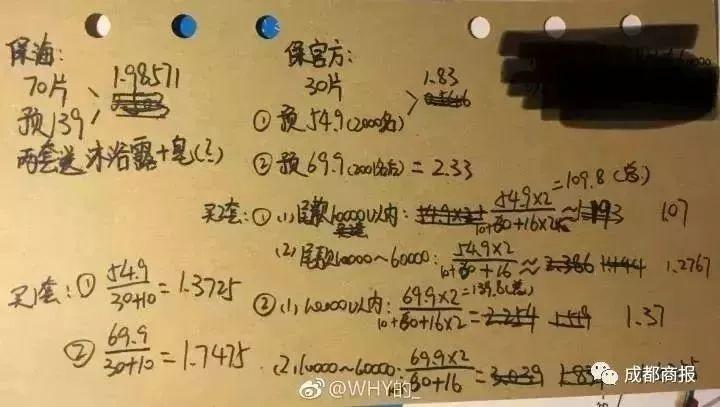 保海:
70片 1.98571
预139
两套送沐浴露+皂(?)
保官方:
30片 1.83
① 预54.9(2000名)
② 预69.9(2001名后) = 2.33
买2套: ① (1) 尾款10000以内: 54.9×2/10+60+16×2 ≈ 1.07
=109.8(总)
(2) 尾款10000~60000: 54.9×2/10+60+16 ≈ 1.2767
② (1) 10000以内: 69.9×2/10+60+16×2 = 1.37
=139.8(总)
(2) 10000~60000: 69.9×2/60+16 =
买1套: ① 54.9/30+10 = 1.3725
② 69.9/30+10 = 1.7475
@WHY的_
成都商报